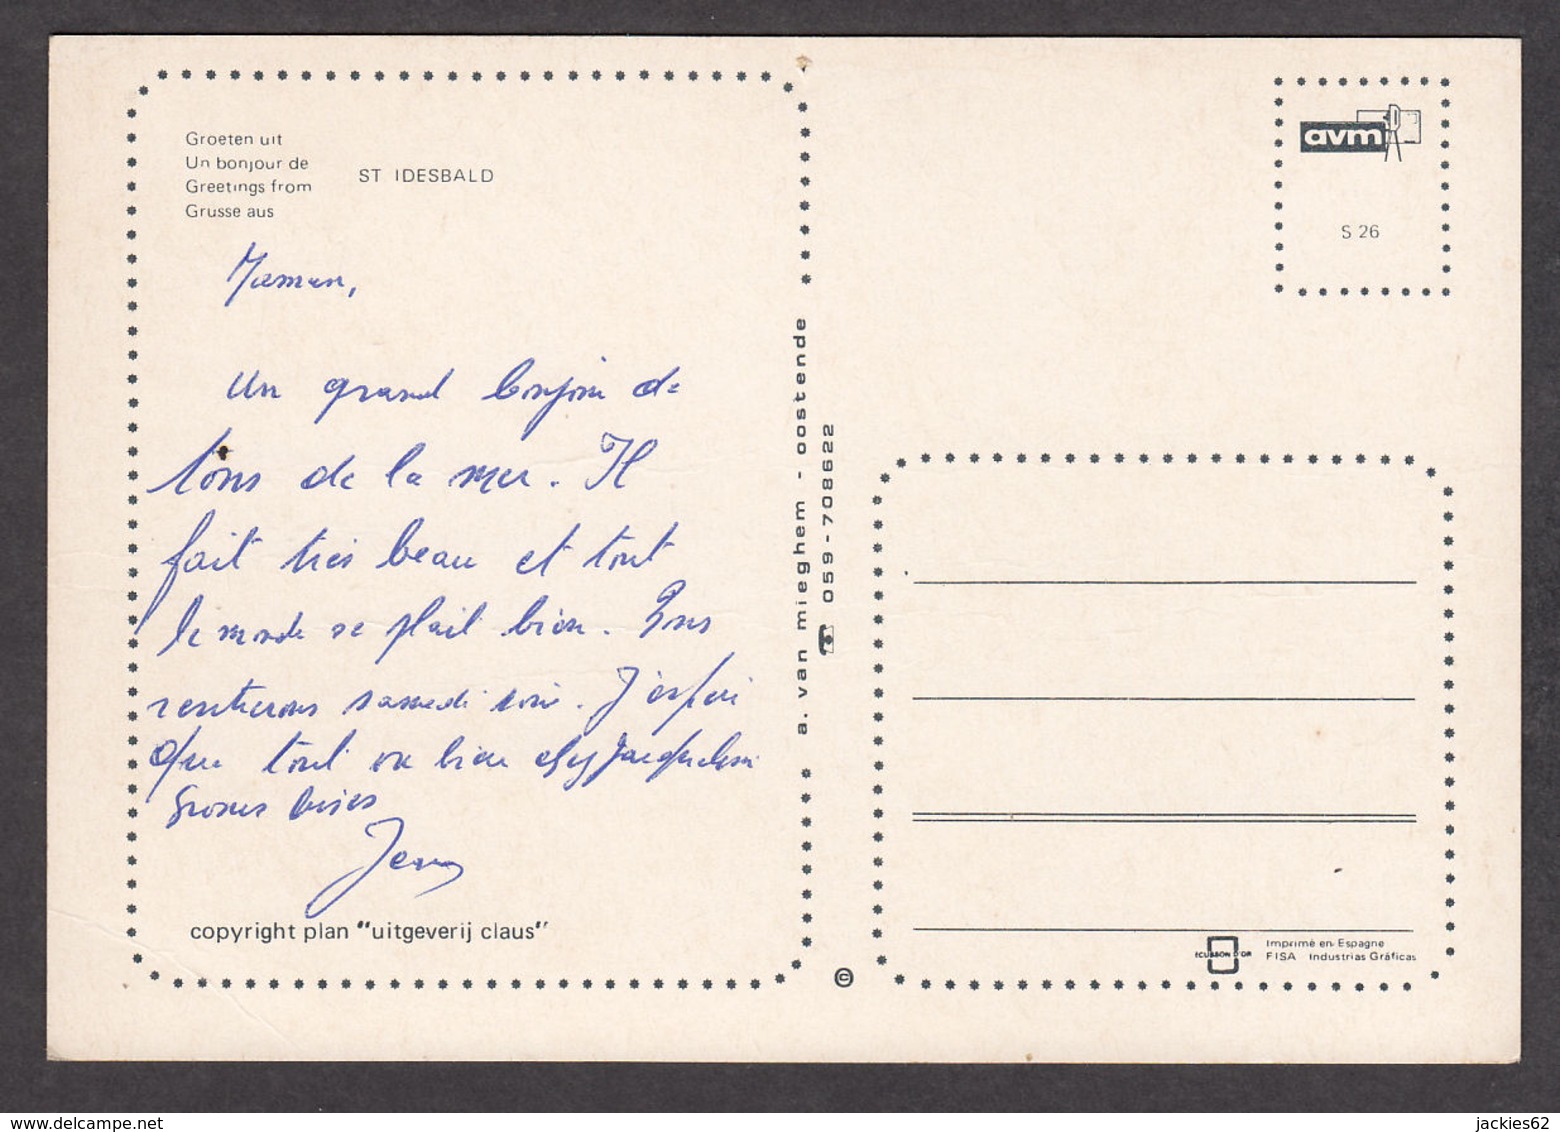 Groeten uit
Un bonjour de
Greetings from
Grusse aus
ST IDESBALD
Maman,
Un grand bonjour de
tous de la mer. Il
fait très beau et tout
le monde se plait bien. Nous
rentrerons samedi soir. J'espère
que tout va bien chez Jacqueline
Grosses bises
Jean
copyright plan "uitgeverij claus"
a. van mieghem - oostende
059-708622
©
avm
S 26
ECUSSON D'OR
Imprimé en Espagne
FISA Industrias Gráficas
jackies62